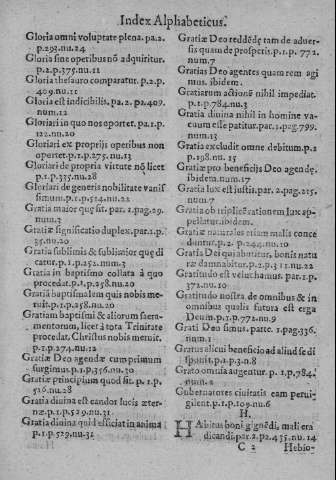 Index Alphabeticus.
Gloria omni voluptate plena. pa.2.
p.293.nu.24
Gloria sine operibus nõ adquiritur.
p.2.p.379.nu.11
Gloria thesauro comparatur. p.2.p.
409.nu.11
Gloria est indicibilis. pa.2. pa.409.
num.12
Gloriari in quo nos oportet. pa.1.p.
122.nu.20
Gloriari ex proprijs operibus non
oportet.p.1.p.275.nu.13
Gloriari de propria virtute nõ licet
p.1.p.335.nu.28
Gloriari de generis nobilitate vanis
simum.p.1.p.524.nu.22
Gratia maior quę sit. par.1.pag.29.
num.3
Gratiæ significatio duplex.par.1.p.
35.nu.20
Gratia sublimis & sublimior quę di
catur.p.1.p.252.num.3
Gratia in baptismo collata à quo
procedat.p.1.p.258.nu.20
Gratiã baptismalem quis nobis me-
ruit.p.1.p.258.nu.20
Gratiam baptismi & aliorum sacra-
mentorum, licet à tota Trinitate
procedat, Christus nobis meruit.
p.1.p.274.nu.12
Gratiæ Deo agendæ cum primum
surgimus.p.1.p.356.nu.30
Gratiæ principium quod sit. p.1.p.
526.nu.28
Gratia diuina est candor lucis æter-
næ.p.1.p.529.nu.31
Gratia diuina quid efficiat in anima
p.1.p.529.nu.31
Gratiæ Deo reddẽdę tam de aduer-
sis quam de prosperis.p.1.p.772.
num.7
Gratias Deo agentes quam rem agi
mus. ibidem.
Gratiarum actionẽ nihil impediat.
p.1.p.784.nu.3
Gratia diuina nihil in homine va-
cuum esse patitur.par.1.pag.799.
num.13
Gratia excludit omne debitum.p.2
p.198.nu.15
Gratiæ pro beneficijs Deo agendę.
ibidem.num.17
Gratia lux est iustis.par.2.pag.215.
num.7
Gratia ob triplicẽ rationem lux ap-
pellatur.ibidem.
Gratiæ naturales etiam malis conce
duntur.p.2.p.244.nu.10
Gratis Dei qui abutitur, bonis natu
ræ damnabitur.p.2.p.311.nu.22
Gratitudo est velut hamus. par.1.p.
372.nu.10
Gratitudo nostra de omnibus & in
omnibus qualis futura est erga
Deum.p.1.p.772.nu.9
Grati Deo simus. parte.1.pag.336.
num.1
Gratus alicui beneficio ad aliud se di
sponit.p.1.p.3.n.8
Grato omnia augentur. p.1.p.784.
num.2
Gubernatores ciuitatis eam perui-
gilent.p.1.p.109.nu.6
H.
HAbitus boni gignẽdi, mali era
dicandi.par.2.p2.435.nu.14
C 2
Hebio-